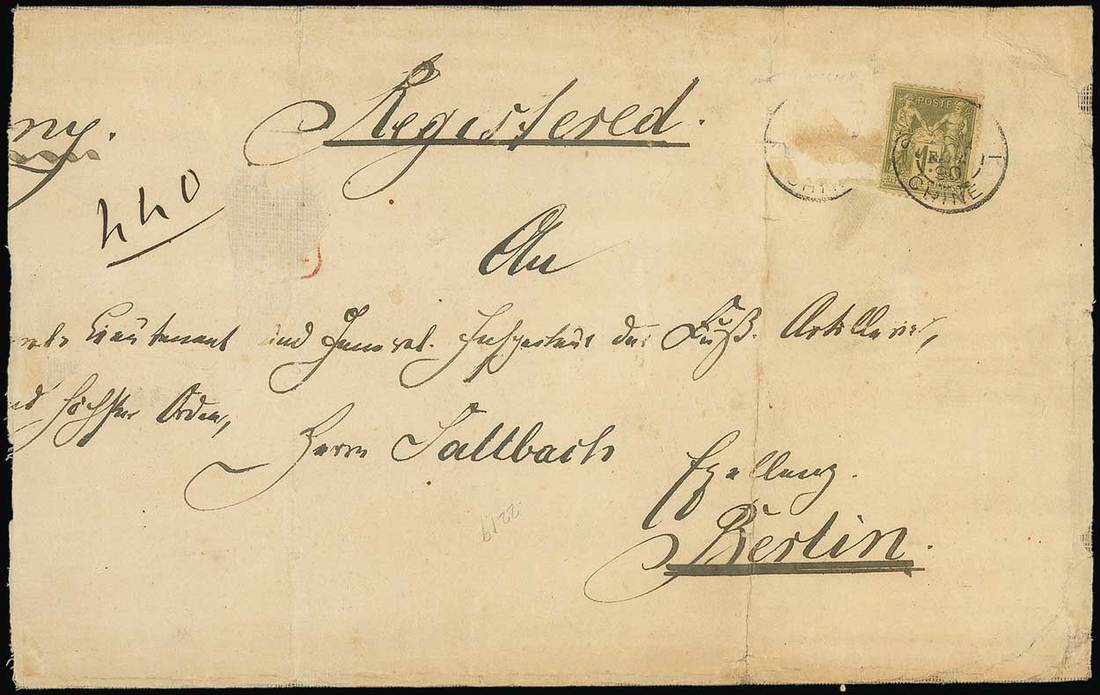 Registered.
ny.
440
POSTE
CHINE
90
CHINE
An
Lieutenant und General. Inspecteur der Fuß. Artillerie,
höchster Orden,
Herrn Sallbach
Exellenz.
Berlin.
2219